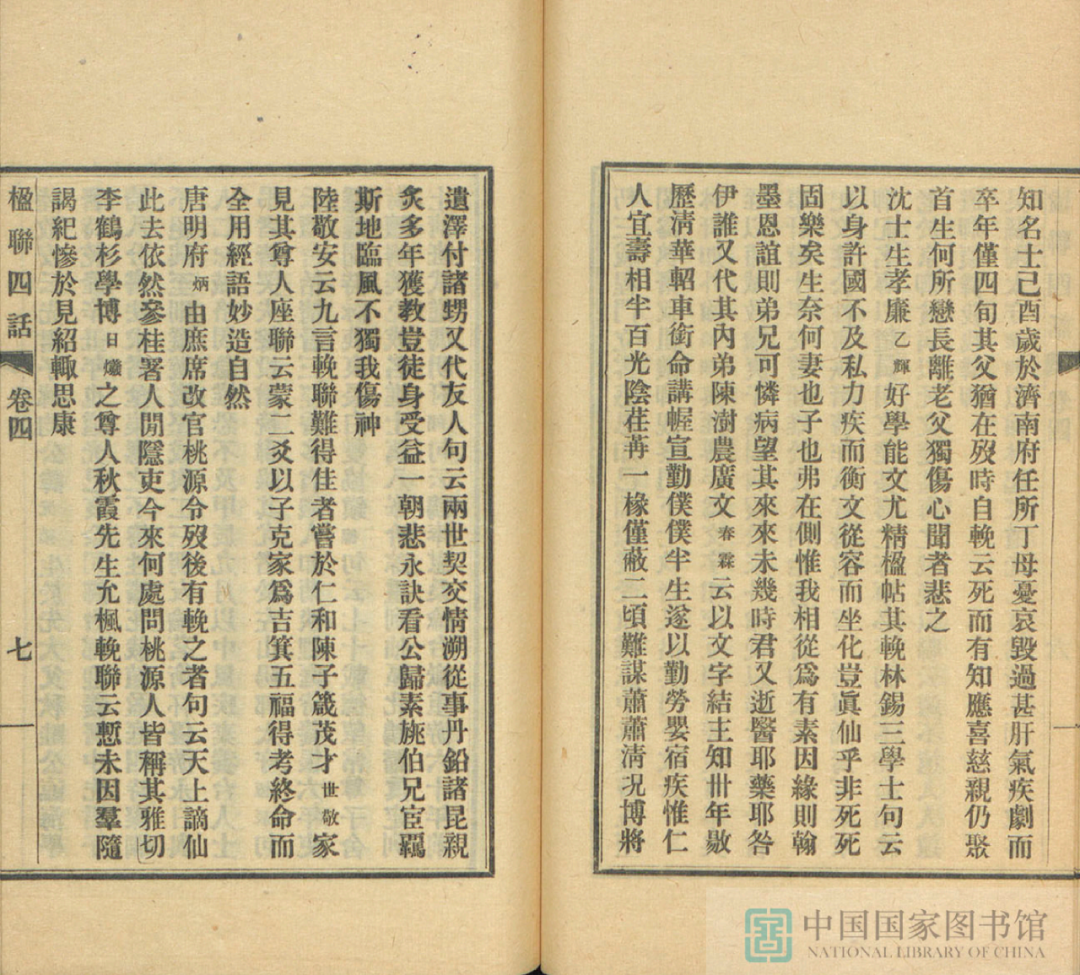 知名士己酉歲於濟南府任所丁母憂哀毀過甚肝氣疾劇而
卒年僅四旬其父猶在歿時自輓云死而有知應喜慈親仍聚
首生何所戀長離老父獨傷心聞者悲之
沈士生孝廉乙輝好學能文尤精楹帖其輓林錫三學士句云
以身許國不及私力疾而衡文從容而坐化豈眞仙乎非死死
固樂矣生奈何妻也子也弗在側惟我相從爲有素因緣則翰
墨恩誼則弟兄可憐病望其來來未幾時君又逝醫耶藥耶咎
伊誰又代其內弟陳澍農廣文春霖云以文字結主知卅年敭
歷淸華軺車銜命講幄宣勤僕僕半生遂以勤勞嬰宿疾惟仁
人宜壽相半百光陰荏苒一椽僅蔽二頃難謀蕭蕭淸况博將
遺澤付諸甥又代友人句云兩世契交情溯從事丹鉛諸昆親
炙多年獲教豈徒身受益一朝悲永訣看公歸素旐伯兄宦羈
斯地臨風不獨我傷神
陸敬安云九言輓聯難得佳者嘗於仁和陳子箴茂才世敬家
見其尊人座聯云蒙二爻以子克家爲吉箕五福得考終命而
全用經語妙造自然
唐明府炳由庶席改官桃源令歿後有輓之者句云天上謫仙
此去依然參桂署人閒隱吏今來何處問桃源人皆稱其雅切
李鶴杉學博日爔之尊人秋霞先生允楓輓聯云慙未因羣隨
謁紀慘於見紹輙思康
楹聯四話 卷四 七
中国国家图书馆
NATIONAL LIBRARY OF CHINA